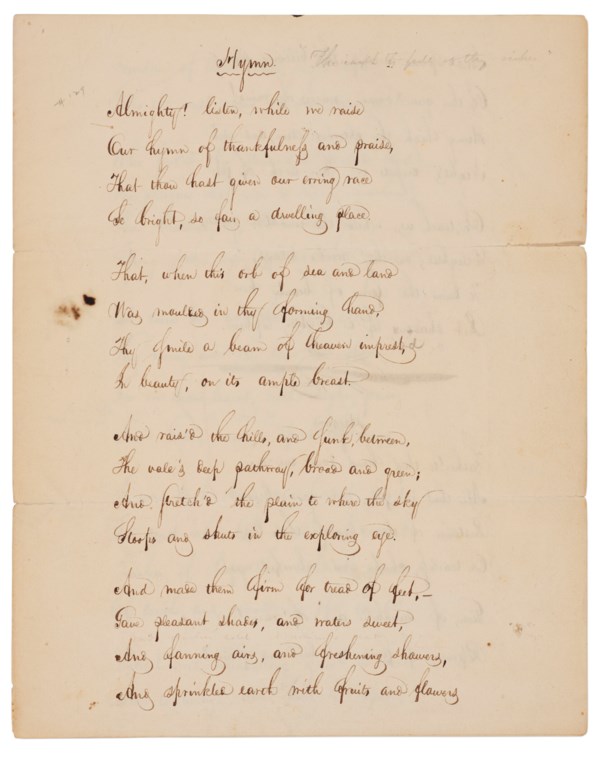 Hymn The earth is full of thy riches
Almighty! listen, while we raise
Our hymn of thankfulness and praise,
That thou hast given our erring race
So bright, so fair a dwelling place
That, when this orb of sea and land
Was moulded in thy forming hand,
Thy smile a beam of heaven imprest,
In beauty, on its ample breast.
And rais'd the hills, and sunk, between,
The vale's deep pathway, broad and green;
And stretch'd the plain to where the sky
Stoops and shuts in the exploring eye.
And made them firm for tread of feet,—
Gave pleasant shades, and water sweet,
And fanning airs, and freshening showers,
And sprinkled earth with fruits and flowers